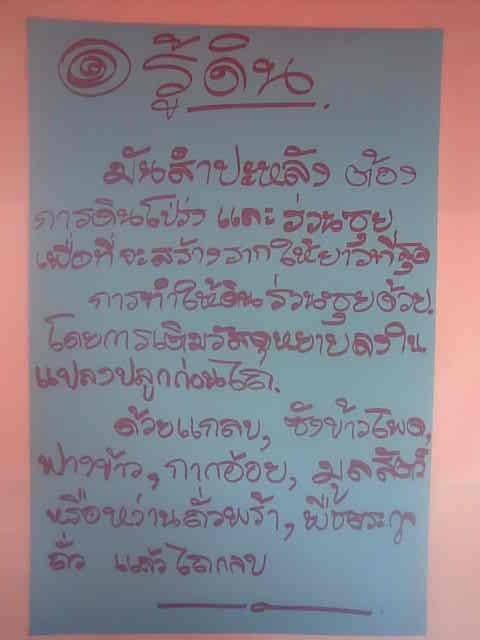 ๑ รู้ดิน
มันสำปะหลัง ต้อง
การดินโปร่ง และ ร่วนซุย
เพื่อที่จะสร้างรากให้ยาวที่สุด
การทำให้ดินร่วนซุยด้วย
โดยการเติมวัสดุหยาบลงใน
แปลงปลูกก่อนไถ.
ด้วยแกลบ, ซังข้าวโพด,
ฟางข้าว, กากอ้อย, มูลสัตว์
หรือหว่านถั่วพร้า, พืชตระกูล
ถั่ว แล้วไถกลบ